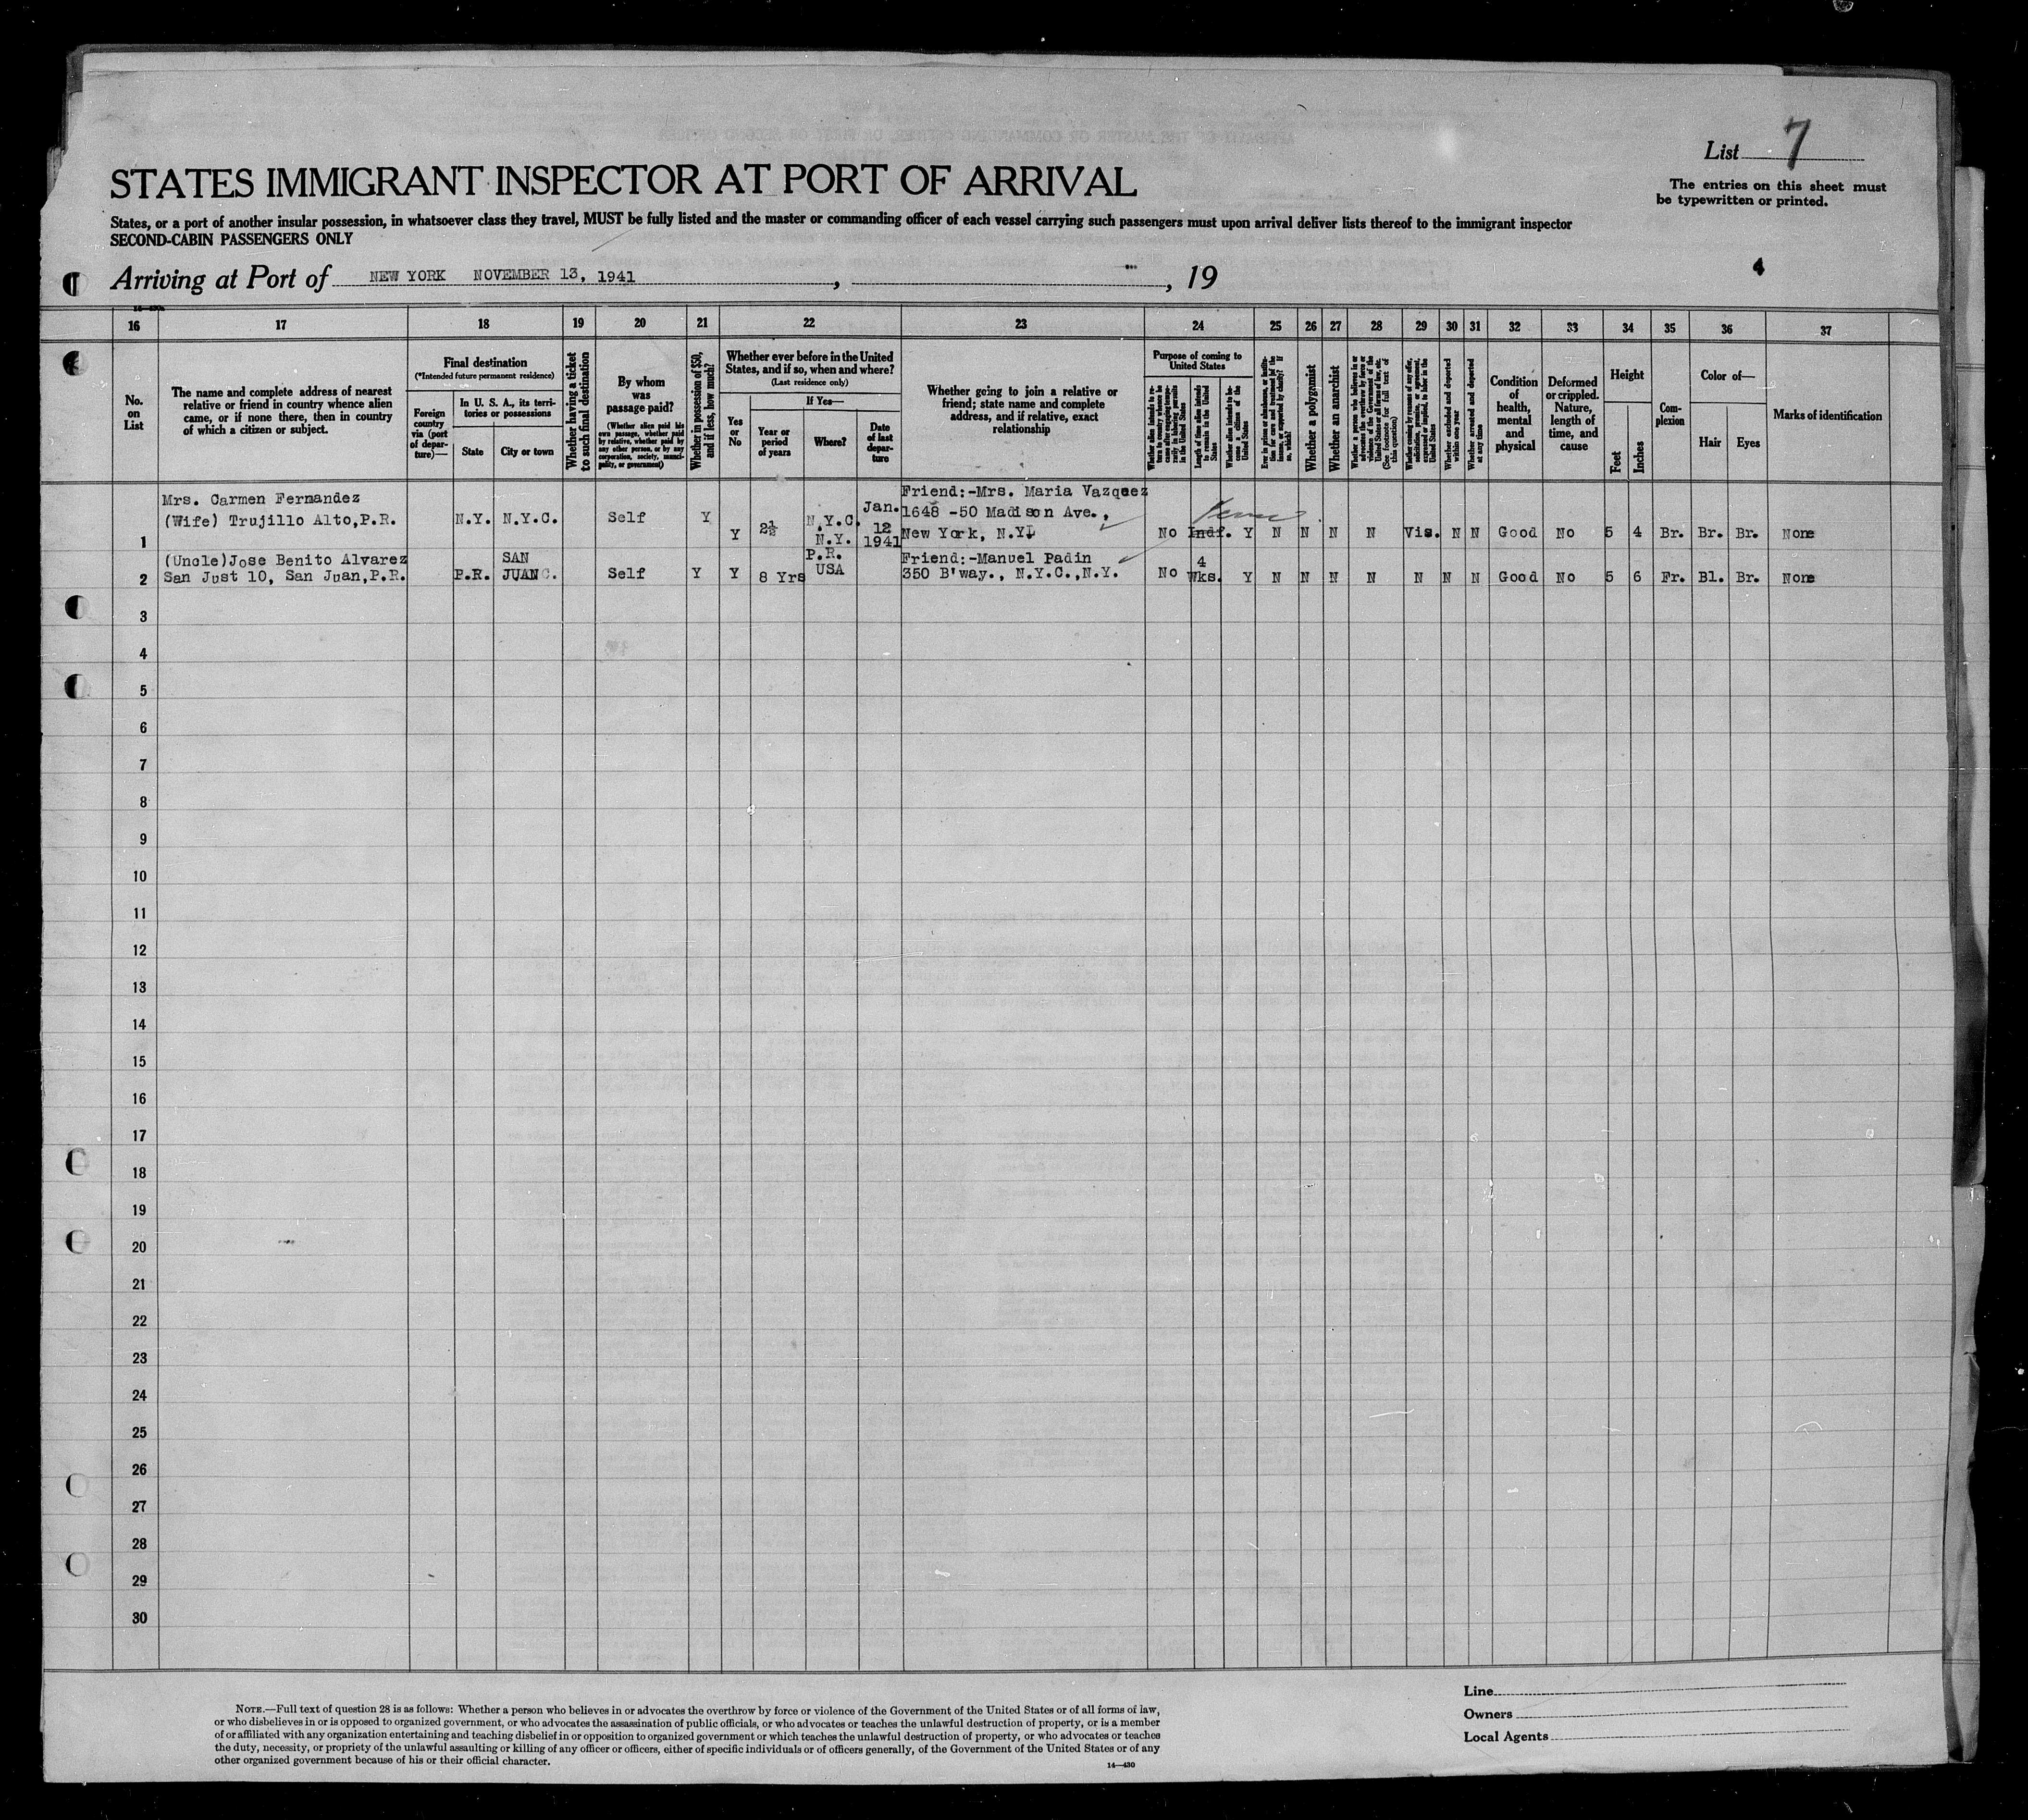 List 7
The entries on this sheet must
be typewritten or printed.
STATES IMMIGRANT INSPECTOR AT PORT OF ARRIVAL
States, or a port of another insular possession, in whatsoever class they travel, MUST be fully listed and the master or commanding officer of each vessel carrying such passengers must upon arrival deliver lists thereof to the immigrant inspector
SECOND-CABIN PASSENGERS ONLY
Arriving at Port of NEW YORK NOVEMBER 13, 1941, , 19
4
16 17 18 19 20 21 22 23 24 25 26 27 28 29 30 31 32 33 34 35 36 37
No.
on
List
The name and complete address of nearest
relative or friend in country whence alien
came, or if none there, then in country
of which a citizen or subject.
Final destination
(*Intended future permanent residence)
Foreign
country
via (port
of depar-
ture)—
In U. S. A., its terri-
tories or possessions
State
City or town
Whether having a ticket
to such final destination
By whom
was
passage paid?
(Whether alien paid his
own passage, whether paid
by relative, whether paid by
any other person, or by any
corporation, society, munici-
pality, or government)
Whether in possession of $50,
and if less, how much?
Whether ever before in the United
States, and if so, when and where?
(Last residence only)
Yes
or
No
If Yes—
Year or
period
of years
Where?
Date
of last
depar-
ture
Whether going to join a relative or
friend; state name and complete
address, and if relative, exact
relationship
Purpose of coming to
United States
Length of time alien intends
to remain in the United
States
Whether alien intends to be-
come a citizen of the
United States
Whether a polygamist
Whether an anarchist
Whether excluded and deported
within one year
Whether arrested and deported
at any time
Condition
of
health,
mental
and
physical
Deformed
or crippled.
Nature,
length of
time, and
cause
Height
Feet
Inches
Com-
plexion
Color of—
Hair
Eyes
Marks of identification
Mrs. Carmen Fernandez
1 (Wife) Trujillo Alto,P.R. N.Y. N.Y.C. Self Y Y 2½ N.Y.C. N.Y. Jan. 12 1941
Friend:-Mrs. Maria Vazquez
1648 -50 Madison Ave.,
New York, N.Y. No Indf. Y N N N N Vis. N N Good No 5 4 Br. Br. Br. None
(Uncle)Jose Benito Alvarez
2 San Just 10, San Juan,P.R. P.R. SAN JUAN Self Y Y 8 Yrs P.R. USA
Friend:-Manuel Padin
350 B'way., N.Y.C.,N.Y. No 4 Wks. Y N N N N N N N Good No 5 6 Fr. Bl. Br. None
3
4
5
6
7
8
9
10
11
12
13
14
15
16
17
18
19
20
21
22
23
24
25
26
27
28
29
30
NOTE.—Full text of question 28 is as follows: Whether a person who believes in or advocates the overthrow by force or violence of the Government of the United States or of all forms of law,
or who disbelieves in or is opposed to organized government, or who advocates the assassination of public officials, or who advocates or teaches the unlawful destruction of property, or is a member
of or affiliated with any organization entertaining and teaching disbelief in or opposition to organized government or which teaches the unlawful destruction of property, or who advocates or teaches
the duty, necessity, or propriety of the unlawful assaulting or killing of any officer or officers, either of specific individuals or of officers generally, of the Government of the United States or of any
other organized government because of his or their official character.
14—430
Line
Owners
Local Agents